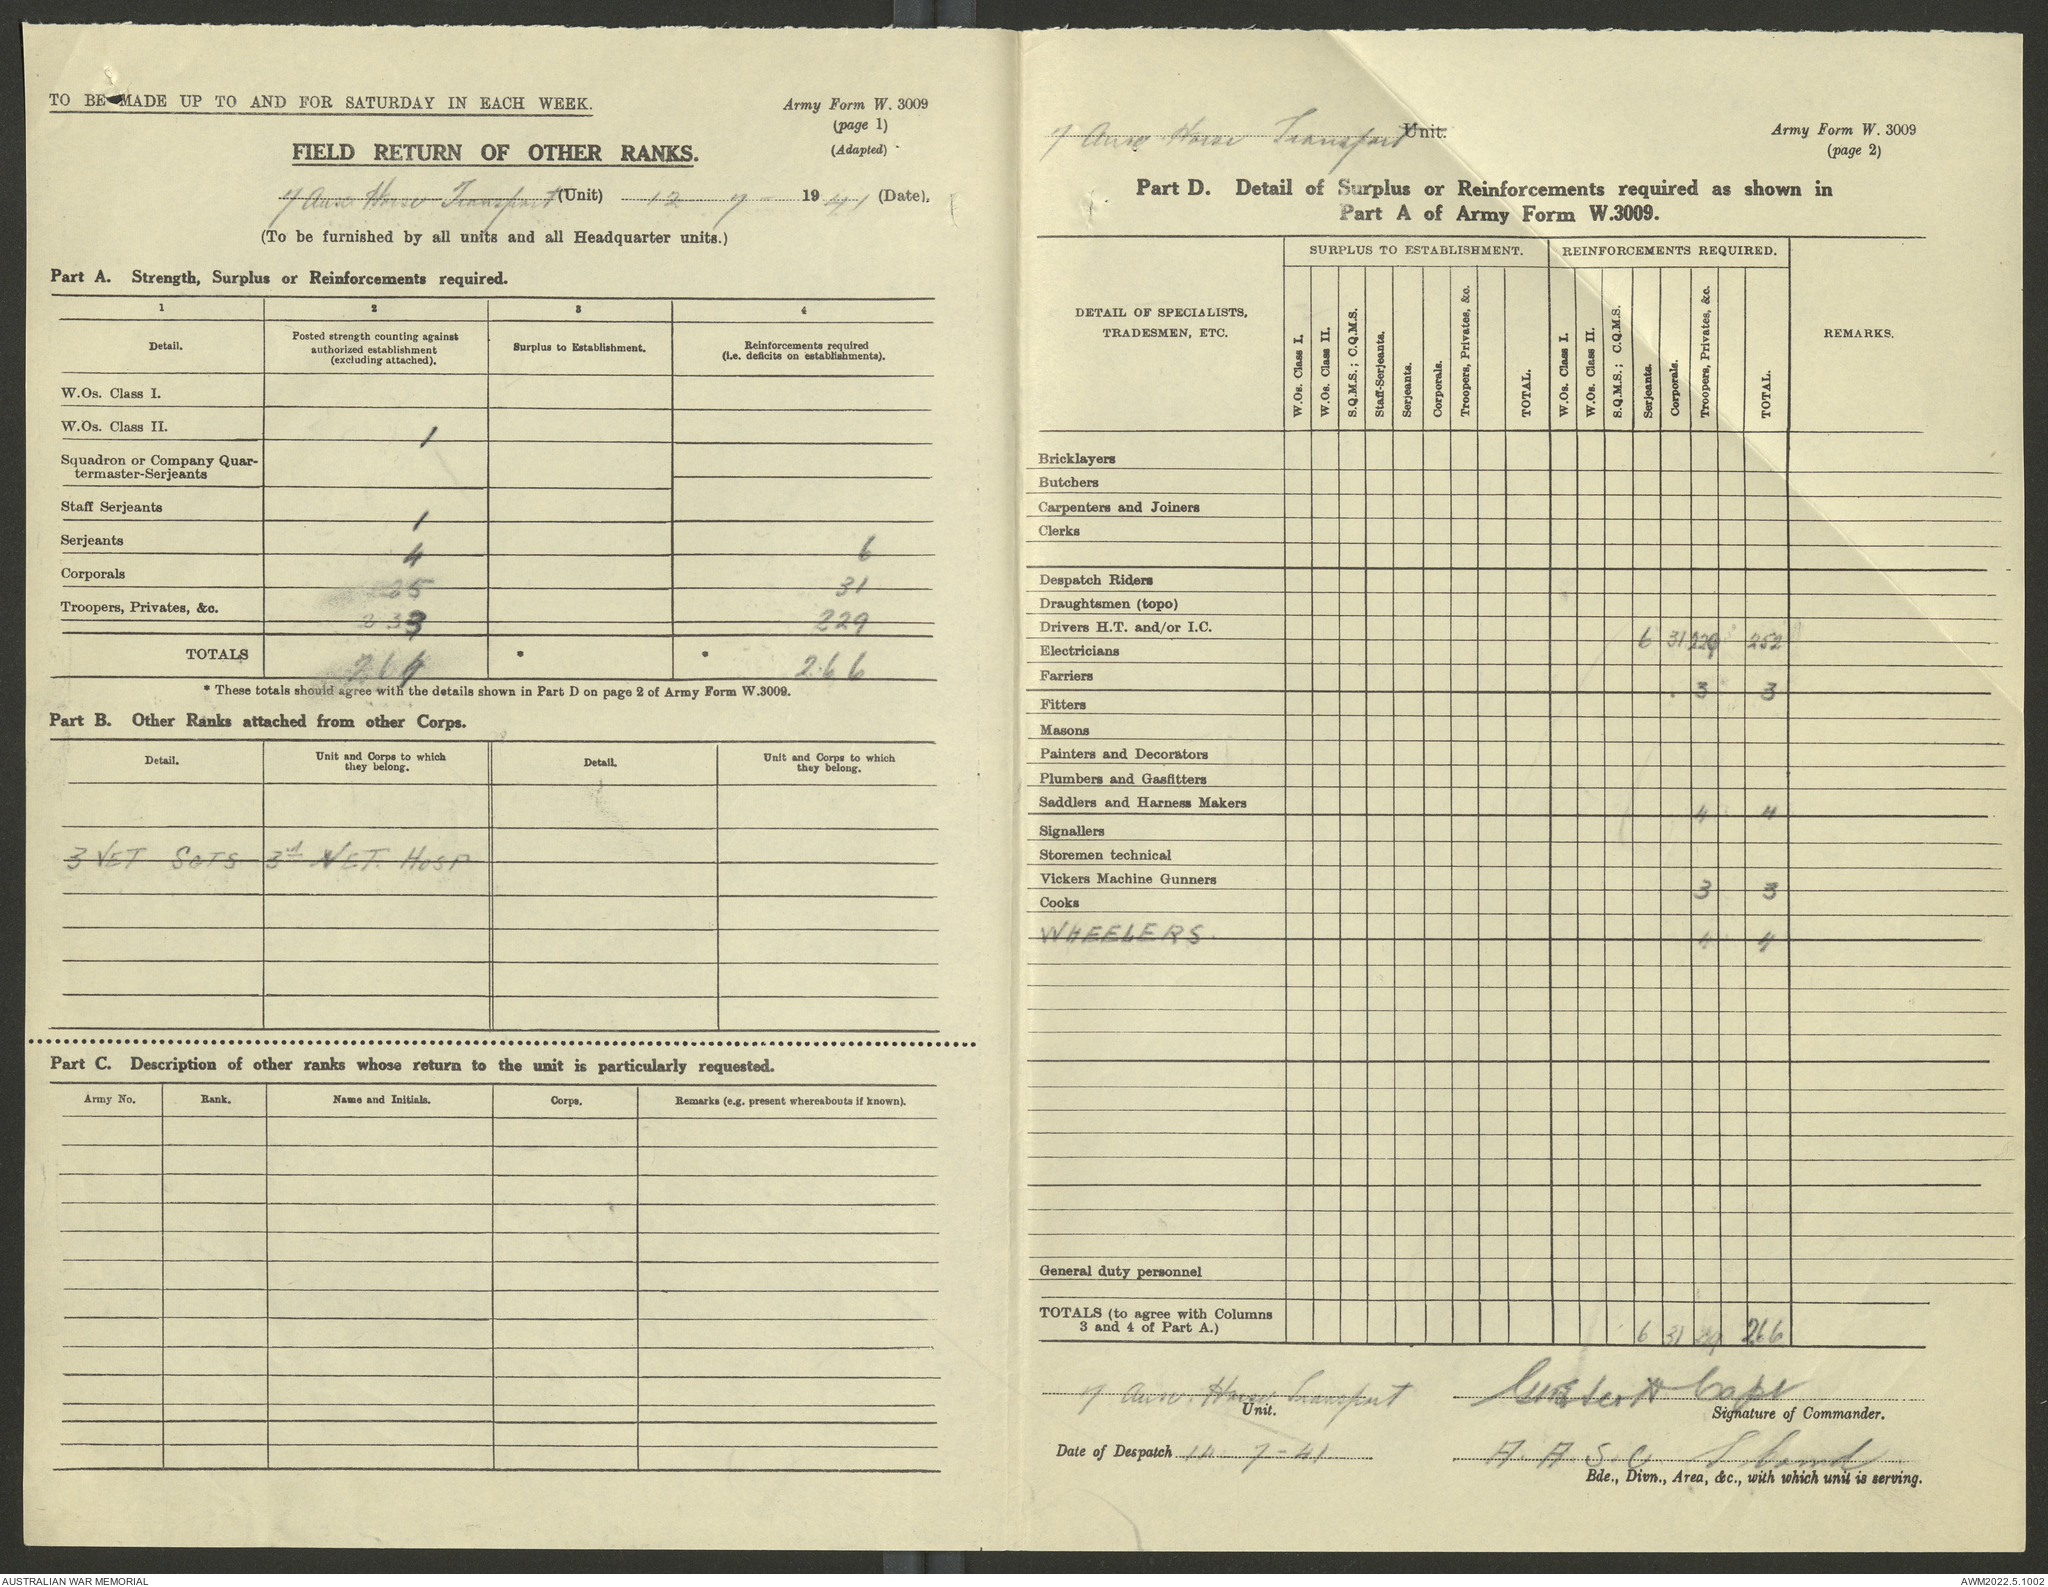 TO BE MADE UP TO AND FOR SATURDAY IN EACH WEEK.
Army Form W. 3009
(page 1)
(Adapted)
FIELD RETURN OF OTHER RANKS.
7 Aust Horse Transport (Unit) 12 - 7 - 1941 (Date).
(To be furnished by all units and all Headquarter units.)
Part A. Strength, Surplus or Reinforcements required.
1 2 3 4
Detail. Posted strength counting against authorized establishment (excluding attached). Surplus to Establishment. Reinforcements required (i.e. deficits on establishments).
W.Os. Class I.
W.Os. Class II. 1
Squadron or Company Quar-
termaster-Serjeants
Staff Serjeants 1
Serjeants 4 6
Corporals 25 31
Troopers, Privates, &c. 233 229
TOTALS 264 * * 266
* These totals should agree with the details shown in Part D on page 2 of Army Form W.3009.
Part B. Other Ranks attached from other Corps.
Detail. Unit and Corps to which they belong. Detail. Unit and Corps to which they belong.
3 VET SGTS 3rd VET. HOSP
Part C. Description of other ranks whose return to the unit is particularly requested.
Army No. Rank. Name and Initials. Corps. Remarks (e.g. present whereabouts if known).
7 Aust Horse Transport Unit.
Army Form W. 3009
(page 2)
Part D. Detail of Surplus or Reinforcements required as shown in
Part A of Army Form W.3009.
DETAIL OF SPECIALISTS, TRADESMEN, ETC.
SURPLUS TO ESTABLISHMENT. REINFORCEMENTS REQUIRED.
W.Os. Class I. W.Os. Class II. S.Q.M.S.; C.Q.M.S. Staff-Serjeants. Serjeants. Corporals. Troopers, Privates, &c. TOTAL. W.Os. Class I. W.Os. Class II. S.Q.M.S.; C.Q.M.S. Serjeants. Corporals. Troopers, Privates, &c. TOTAL.
REMARKS.
Bricklayers
Butchers
Carpenters and Joiners
Clerks
Despatch Riders
Draughtsmen (topo)
Drivers H.T. and/or I.C. 6 31 252
Electricians
Farriers 3 3
Fitters
Masons
Painters and Decorators
Plumbers and Gasfitters
Saddlers and Harness Makers 4 4
Signallers
Storemen technical
Vickers Machine Gunners 3 3
Cooks
WHEELERS. 4 4
General duty personnel
TOTALS (to agree with Columns
3 and 4 of Part A.) 6 31 266
7 Aust. Horse Transport
Unit.
Capt
Signature of Commander.
Date of Despatch 14 - 7 - 41
A. A. S. C.
Bde., Divn., Area, &c., with which unit is serving.
AUSTRALIAN WAR MEMORIAL
AWM2022.5.1002